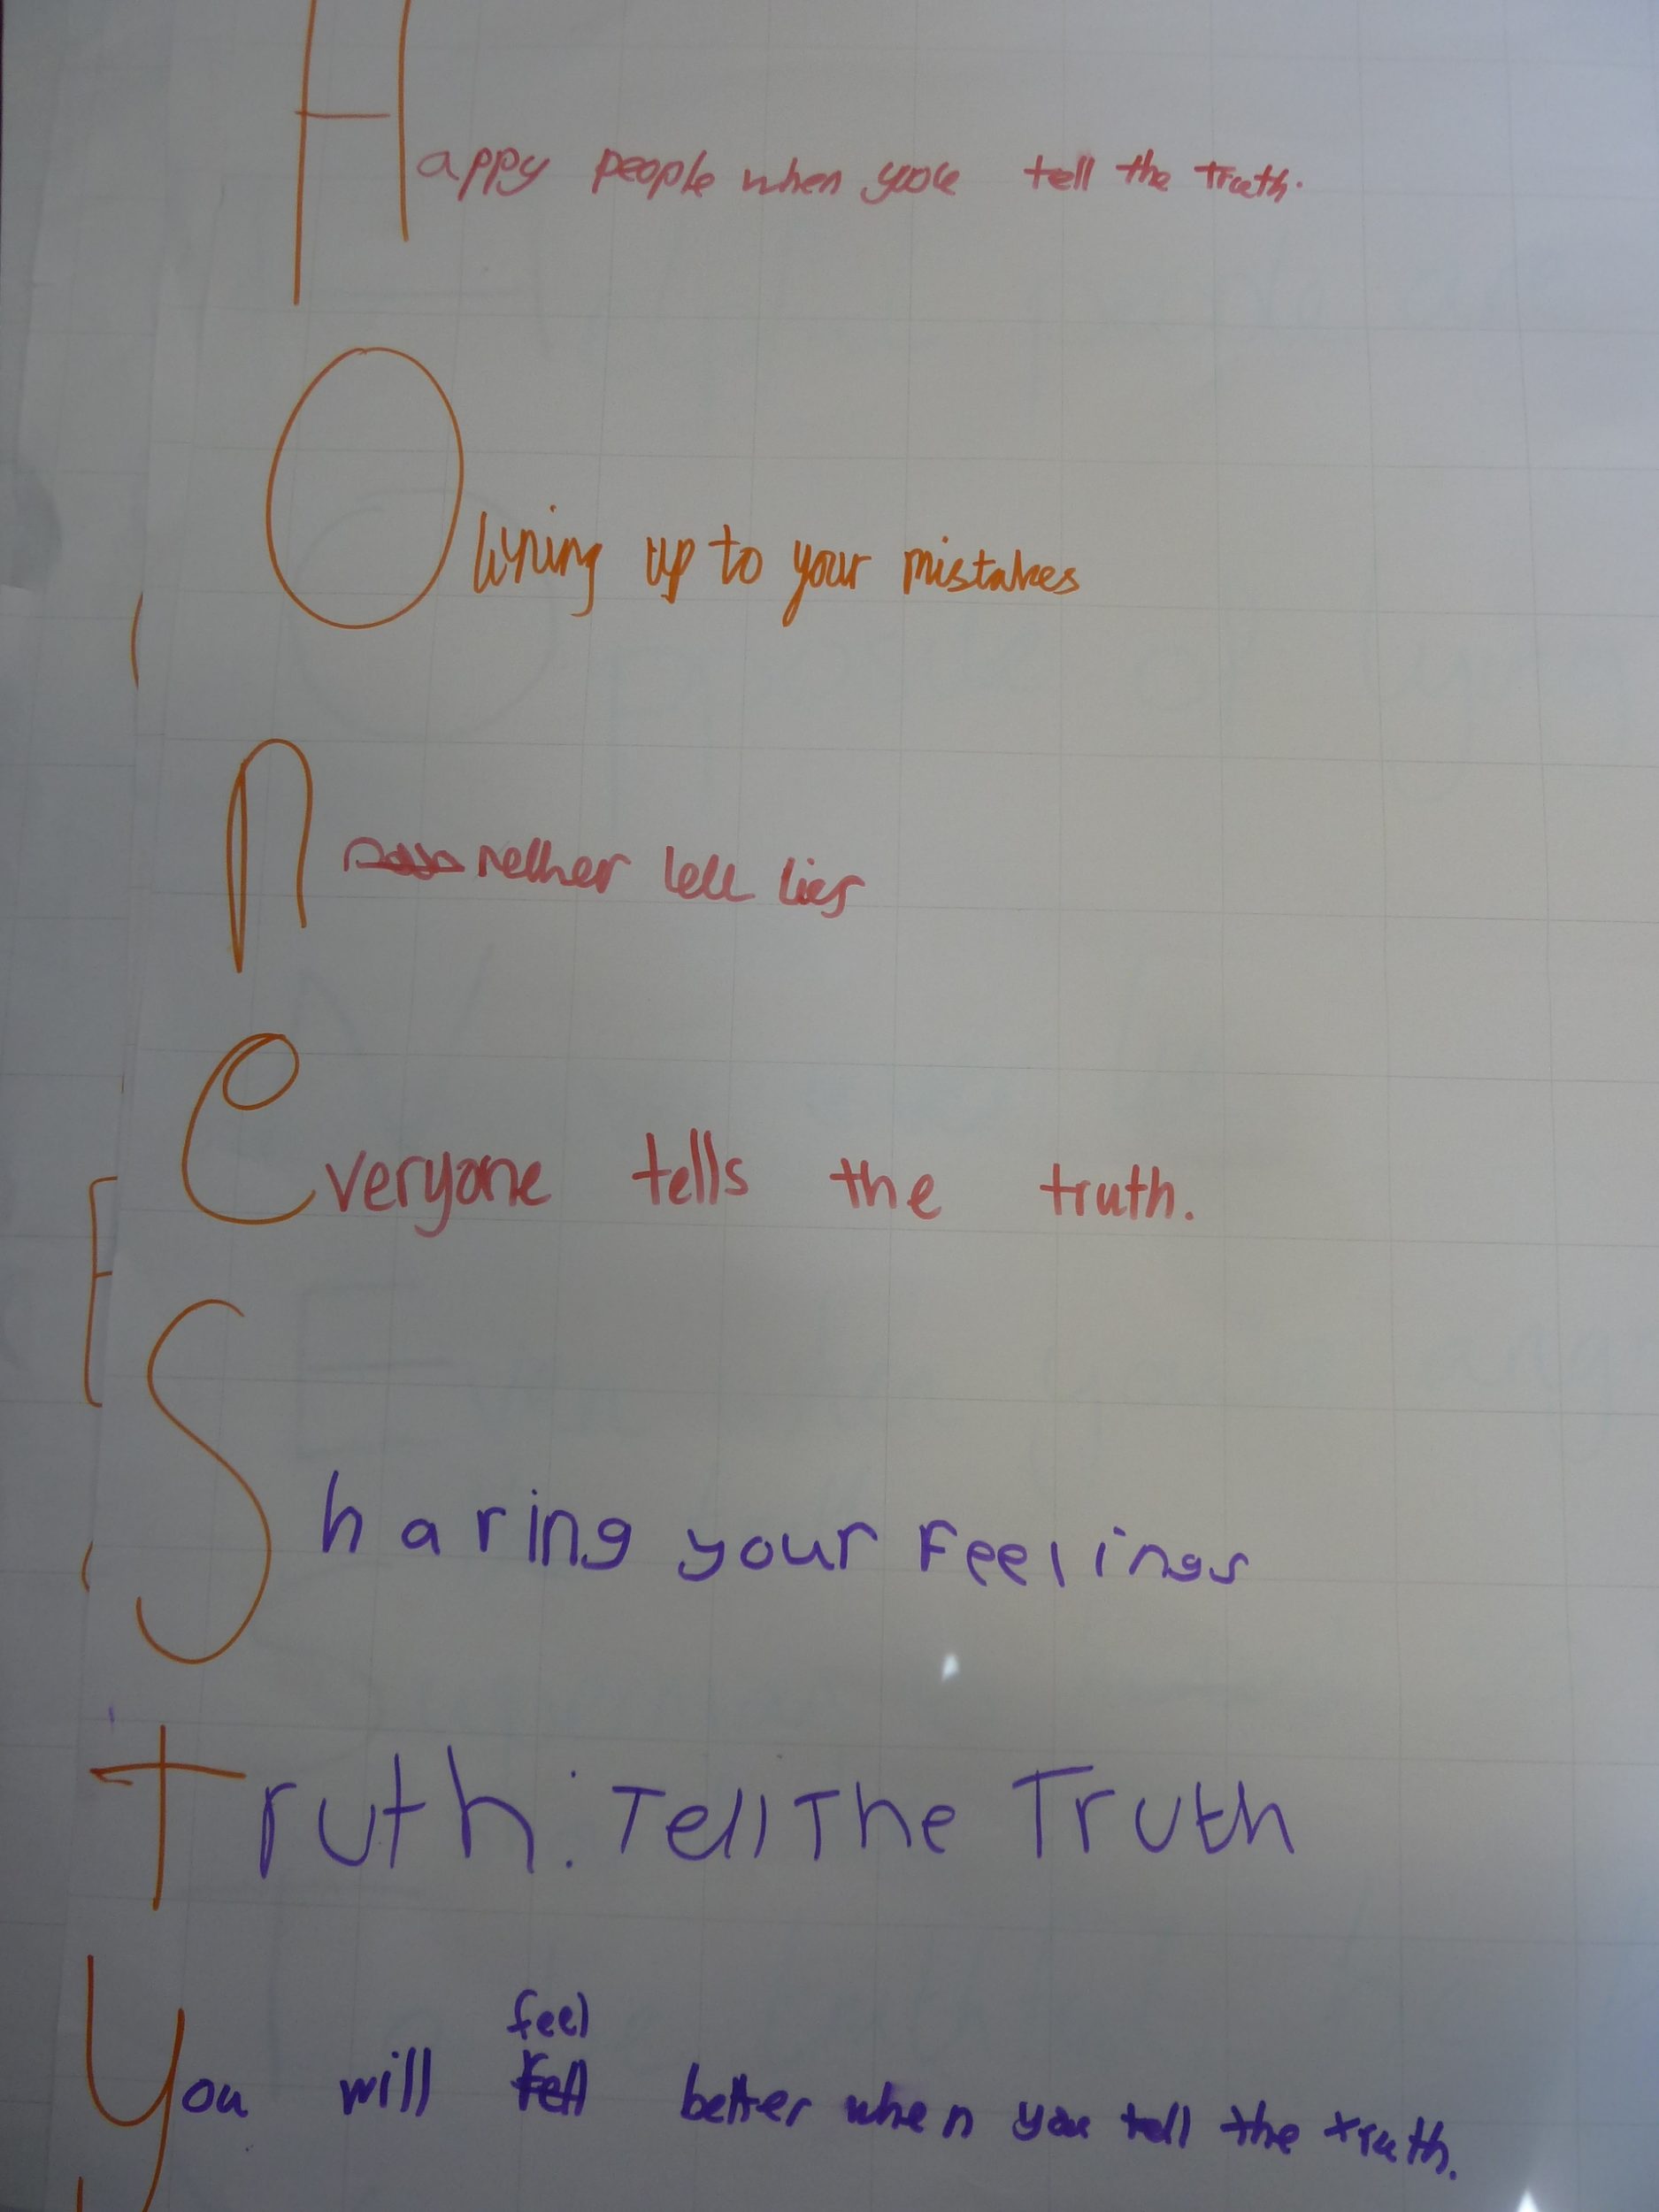 Happy people when you tell the truth.
Owning up to your mistakes
n nether tell lies
everyone tells the truth.
Sharing your Feelings
Truth: Tell The Truth
feel
You will better when you tell the truth.